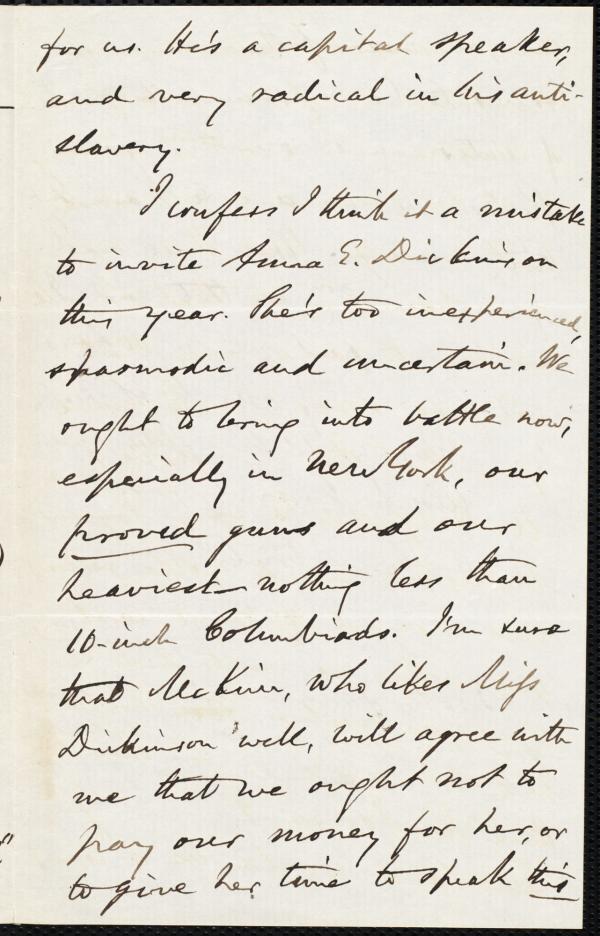 for us. He's a capital speaker,
and very radical in his anti-
slavery.
I confess I think it a mistake
to invite Anna E. Dickinson
this year. She's too inexperienced,
spasmodic and uncertain. We
ought to bring into battle now,
especially in New York, our
proved guns and our
heaviest—nothing less than
10-inch Columbiads. I'm sure
that McKim, who likes Miss
Dickinson well, will agree with
me that we ought not to
pay our money for her, or
to give her time to speak this